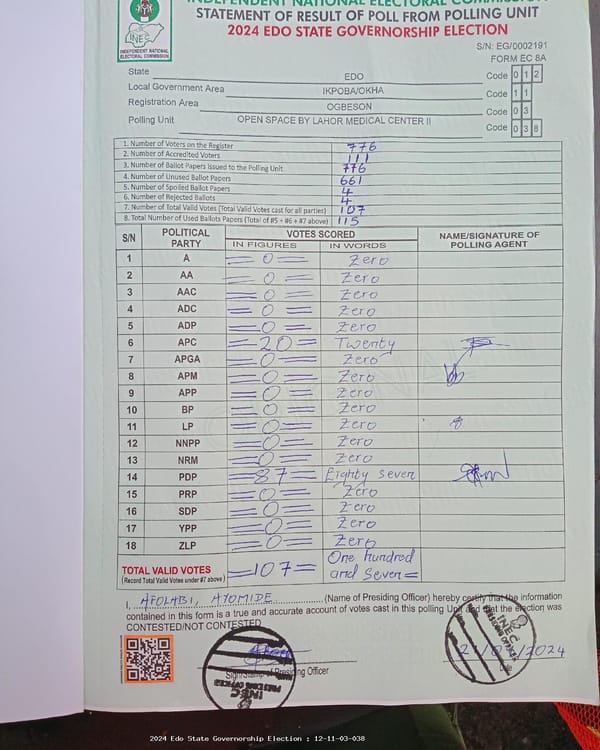 INDEPENDENT NATIONAL ELECTORAL COMMISSION
STATEMENT OF RESULT OF POLL FROM POLLING UNIT
2024 EDO STATE GOVERNORSHIP ELECTION
INEC
INDEPENDENT NATIONAL
ELECTORAL COMMISSION
S/N: EG/0002191
FORM EC 8A
State EDO Code 0 1 2
Local Government Area IKPOBA/OKHA Code 1 1
Registration Area OGBESON Code 0 3
Polling Unit OPEN SPACE BY LAHOR MEDICAL CENTER II Code 0 3 8
1. Number of Voters on the Register 776
2. Number of Accredited Voters 111
3. Number of Ballot Papers Issued to the Polling Unit 776
4. Number of Unused Ballot Papers 661
5. Number of Spoiled Ballot Papers 4
6. Number of Rejected Ballots 4
7. Number of Total Valid Votes (Total Valid Votes cast for all parties) 107
8. Total Number of Used Ballots Papers (Total of #5 + #6 + #7 above) 115
S/N POLITICAL PARTY VOTES SCORED NAME/SIGNATURE OF POLLING AGENT
IN FIGURES IN WORDS
1 A =0= Zero
2 AA =0= Zero
3 AAC =0= Zero
4 ADC =0= Zero
5 ADP =0= Zero
6 APC =20= Twenty
7 APGA =0= Zero
8 APM =0= Zero
9 APP =0= Zero
10 BP =0= Zero
11 LP =0= Zero
12 NNPP =0= Zero
13 NRM =0= Zero
14 PDP =87= Eighty seven
15 PRP =0= Zero
16 SDP =0= Zero
17 YPP =0= Zero
18 ZLP =0= Zero
TOTAL VALID VOTES =107= One hundred
(Record Total Valid Votes under #7 above) and Seven=
I, AFOLABI, AYOMIDE (Name of Presiding Officer) hereby certify that the information
contained in this form is a true and accurate account of votes cast in this polling Unit and that the election was
CONTESTED/NOT CONTESTED
Presiding Officer
INEC
PRESIDING OFFICER
INEC
PRESIDING OFFICER
/2024
Date
2024 Edo State Governorship Election : 12-11-03-038